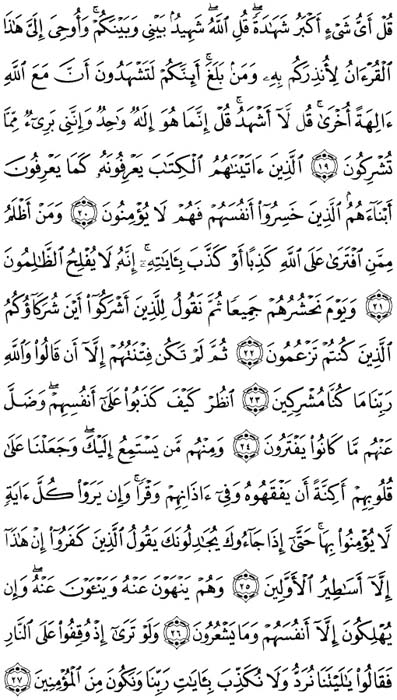 قُلْ أَيُّ شَيْءٍ أَكْبَرُ شَهَٰدَةً ۖ قُلِ ٱللَّهُ ۖ شَهِيدٌۢ بَيْنِى وَبَيْنَكُمْ ۚ وَأُوحِىَ إِلَىَّ هَٰذَا
ٱلْقُرْءَانُ لِأُنذِرَكُم بِهِۦ وَمَنۢ بَلَغَ ۚ أَئِنَّكُمْ لَتَشْهَدُونَ أَنَّ مَعَ ٱللَّهِ
ءَالِهَةً أُخْرَىٰ ۚ قُل لَّآ أَشْهَدُ ۚ قُلْ إِنَّمَا هُوَ إِلَٰهٌ وَٰحِدٌ وَإِنَّنِى بَرِىٓءٌ مِّمَّا
تُشْرِكُونَ ۝١٩ ٱلَّذِينَ ءَاتَيْنَٰهُمُ ٱلْكِتَٰبَ يَعْرِفُونَهُۥ كَمَا يَعْرِفُونَ
أَبْنَآءَهُمُ ۘ ٱلَّذِينَ خَسِرُوٓا۟ أَنفُسَهُمْ فَهُمْ لَا يُؤْمِنُونَ ۝٢٠ وَمَنْ أَظْلَمُ
مِمَّنِ ٱفْتَرَىٰ عَلَى ٱللَّهِ كَذِبًا أَوْ كَذَّبَ بِـَٔايَٰتِهِۦٓ ۗ إِنَّهُۥ لَا يُفْلِحُ ٱلظَّٰلِمُونَ
۝٢١ وَيَوْمَ نَحْشُرُهُمْ جَمِيعًا ثُمَّ نَقُولُ لِلَّذِينَ أَشْرَكُوٓا۟ أَيْنَ شُرَكَآؤُكُمُ
ٱلَّذِينَ كُنتُمْ تَزْعُمُونَ ۝٢٢ ثُمَّ لَمْ تَكُن فِتْنَتُهُمْ إِلَّآ أَن قَالُوا۟ وَٱللَّهِ
رَبِّنَا مَا كُنَّا مُشْرِكِينَ ۝٢٣ ٱنظُرْ كَيْفَ كَذَبُوا۟ عَلَىٰٓ أَنفُسِهِمْ ۚ وَضَلَّ
عَنْهُم مَّا كَانُوا۟ يَفْتَرُونَ ۝٢٤ وَمِنْهُم مَّن يَسْتَمِعُ إِلَيْكَ ۖ وَجَعَلْنَا عَلَىٰ
قُلُوبِهِمْ أَكِنَّةً أَن يَفْقَهُوهُ وَفِىٓ ءَاذَانِهِمْ وَقْرًا ۚ وَإِن يَرَوْا۟ كُلَّ ءَايَةٍ
لَّا يُؤْمِنُوا۟ بِهَا ۚ حَتَّىٰٓ إِذَا جَآءُوكَ يُجَٰدِلُونَكَ يَقُولُ ٱلَّذِينَ كَفَرُوٓا۟ إِنْ هَٰذَآ
إِلَّآ أَسَٰطِيرُ ٱلْأَوَّلِينَ ۝٢٥ وَهُمْ يَنْهَوْنَ عَنْهُ وَيَنْـَٔوْنَ عَنْهُ ۖ وَإِن
يُهْلِكُونَ إِلَّآ أَنفُسَهُمْ وَمَا يَشْعُرُونَ ۝٢٦ وَلَوْ تَرَىٰٓ إِذْ وُقِفُوا۟ عَلَى ٱلنَّارِ
فَقَالُوا۟ يَٰلَيْتَنَا نُرَدُّ وَلَا نُكَذِّبَ بِـَٔايَٰتِ رَبِّنَا وَنَكُونَ مِنَ ٱلْمُؤْمِنِينَ ۝٢٧